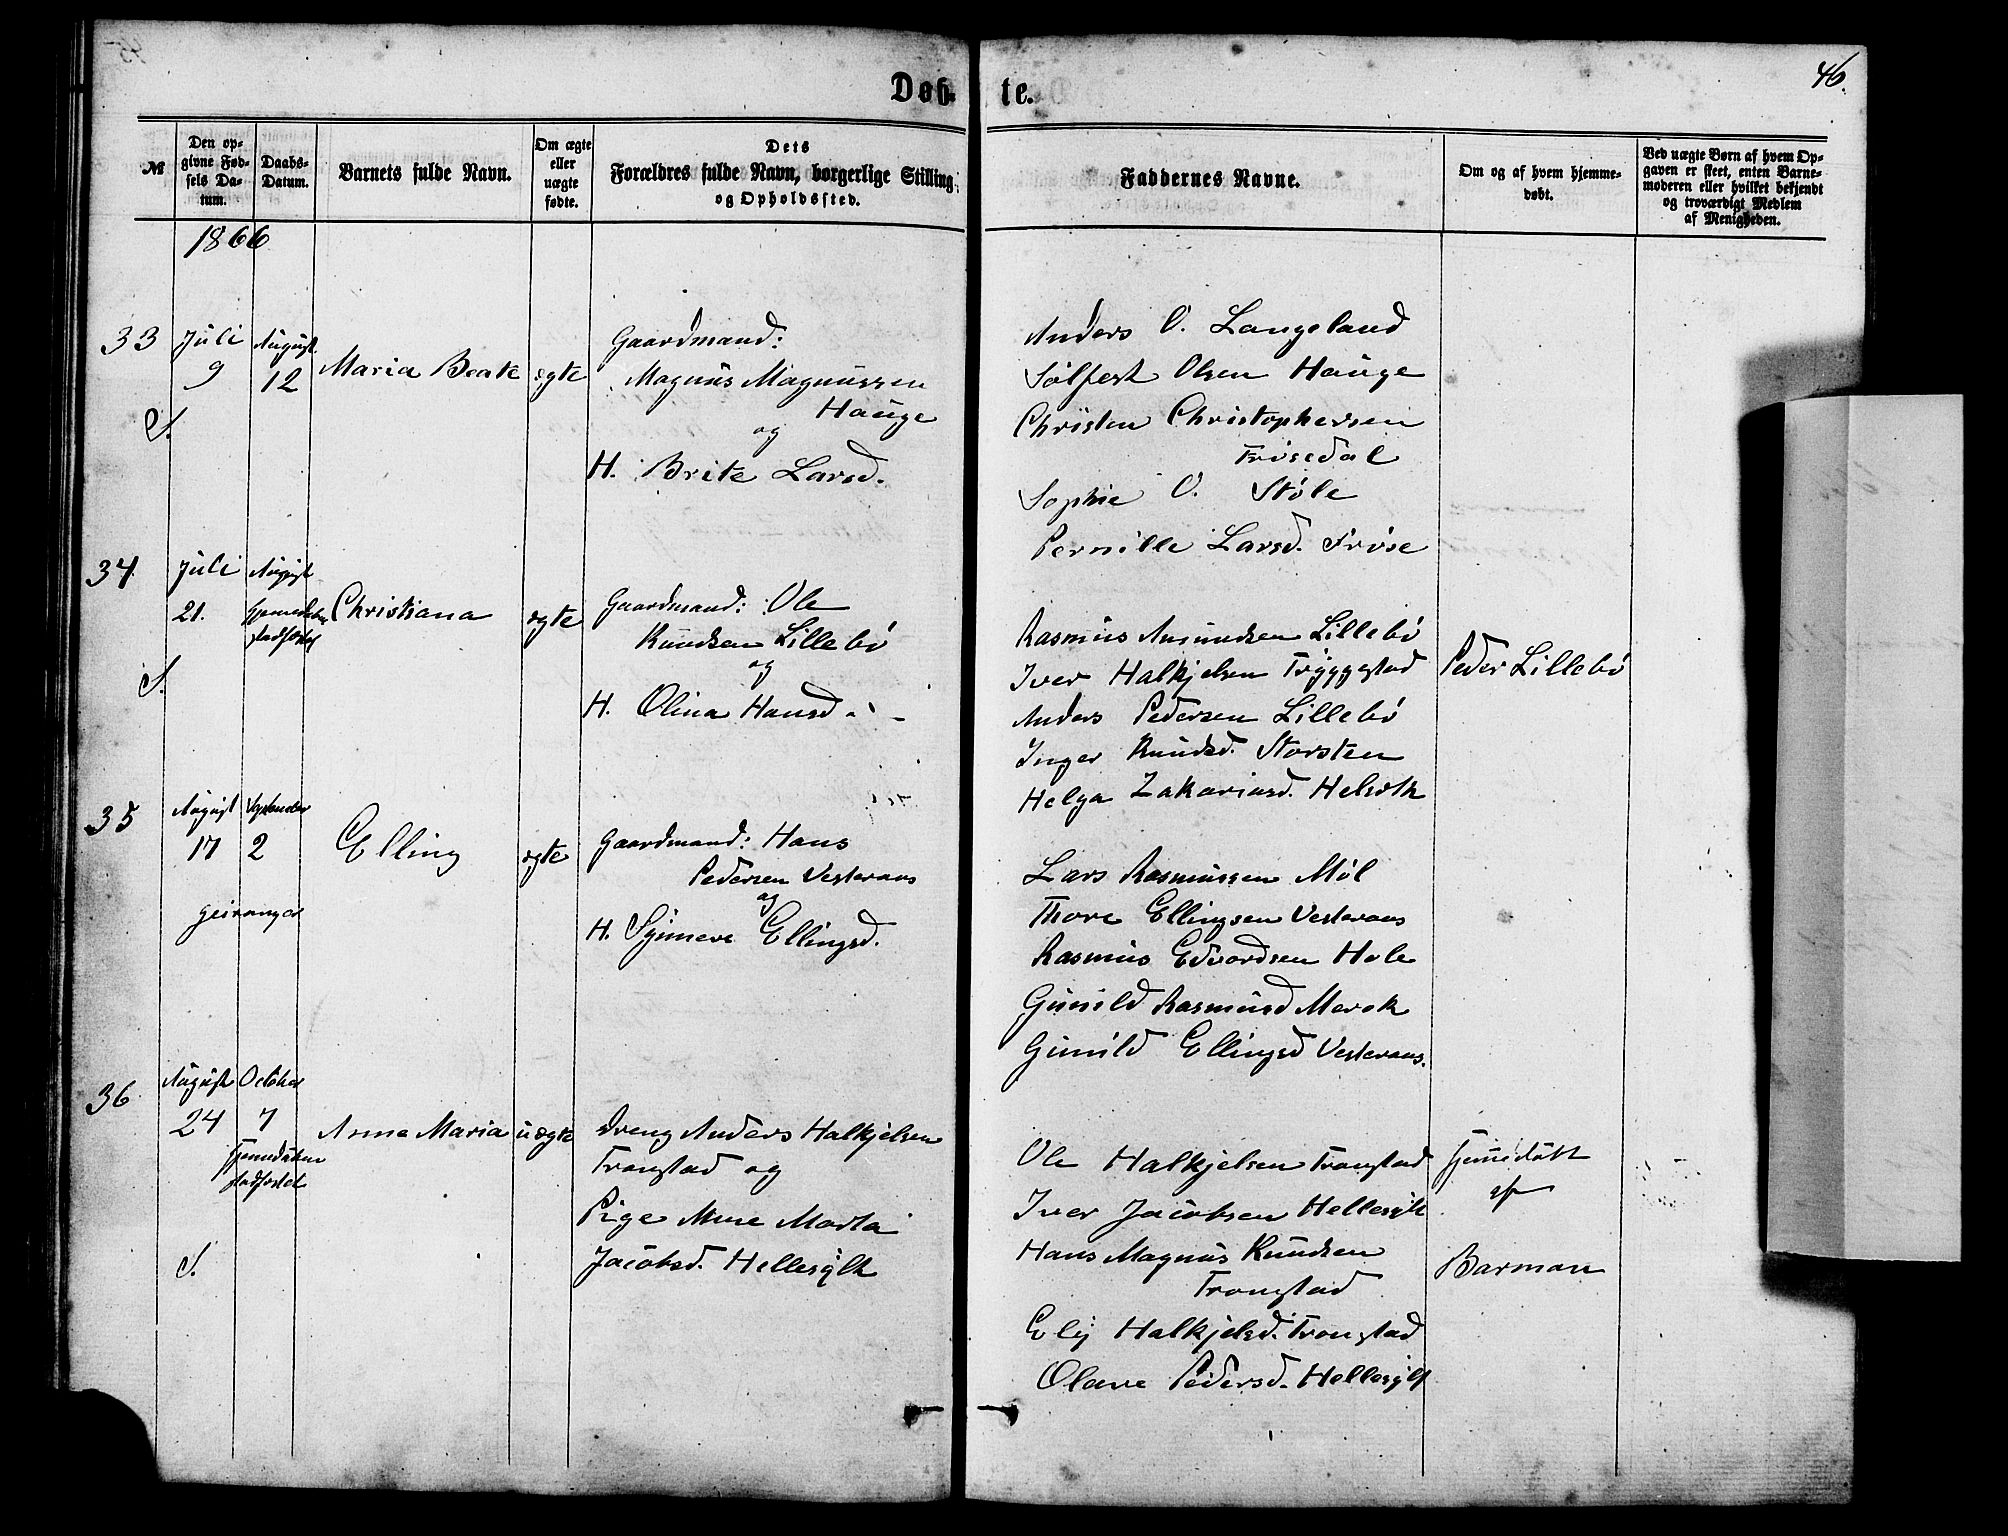 Døb-
te.
46.
№
Den op-
givne Fød-
sels Da-
tum.
Daabs-
Datum.
Barnets fulde Navn.
Om ægte
eller
uægte
fødte.
Dets
Forældres fulde Navn, borgerlige Stilling
og Opholdssted.
Faddernes Navne.
Om og af hvem hjemme-
døbt.
Ved uægte Børn af hvem Op-
gaven er skeet, enten Barne-
moderen eller hvilket bekjendt
og troværdigt Medlem
af Menigheden.
1866
33
Juli
9
August
12
S.
Maria Beate
ægte
Gaardmand:
Magnus Magnussen
Hauge
og
H. Brite Larsd.
Anders O. Langeland
Sølfest Olsen Hauge
Christen Christophersen
Frøsedal
Sophie O. Støle
Pernille Larsd. Frøse
34
Juli
21.
August
S.
Christiana
ægte
Gaardmand: Ole
Knudsen Lillebø
og
H. Olina Hansd.
Rasmus Amundsen Lillebø
Iver Halkjelsen Tryggestad
Anders Pedersen Lillebø
Inger Knudsd. Storsten
Helga Zakariasd. Helset
Peder Lillebø
35
August
17
September
2
Geiranger
Elling
ægte
Gaardmand: Hans
Pedersen Vesteraas
og
H. Synneve Ellingsd.
Lars Rasmussen Møl
Thore Ellingsen Vesteraas
Rasmus Edvardsen Hole
Gunild Rasmusd Merok
Gunild Ellingsd Vesteraas.
36
August
24
October
7
stadfæstet
S.
Anne Maria
uægte
Dreng Anders Halkjelsen
Tronstad og
Pige Anne Marta
Jacobsd. Hellesylt
Ole Halkjelsen Tronstad
Iver Jacobsen Hellesylt
Hans Magnus Knudsen
Tronstad
Eli Halkjelsd. Tronstad
Olave Pedersd. Hellesylt
hjemmedøbt
af
Barman